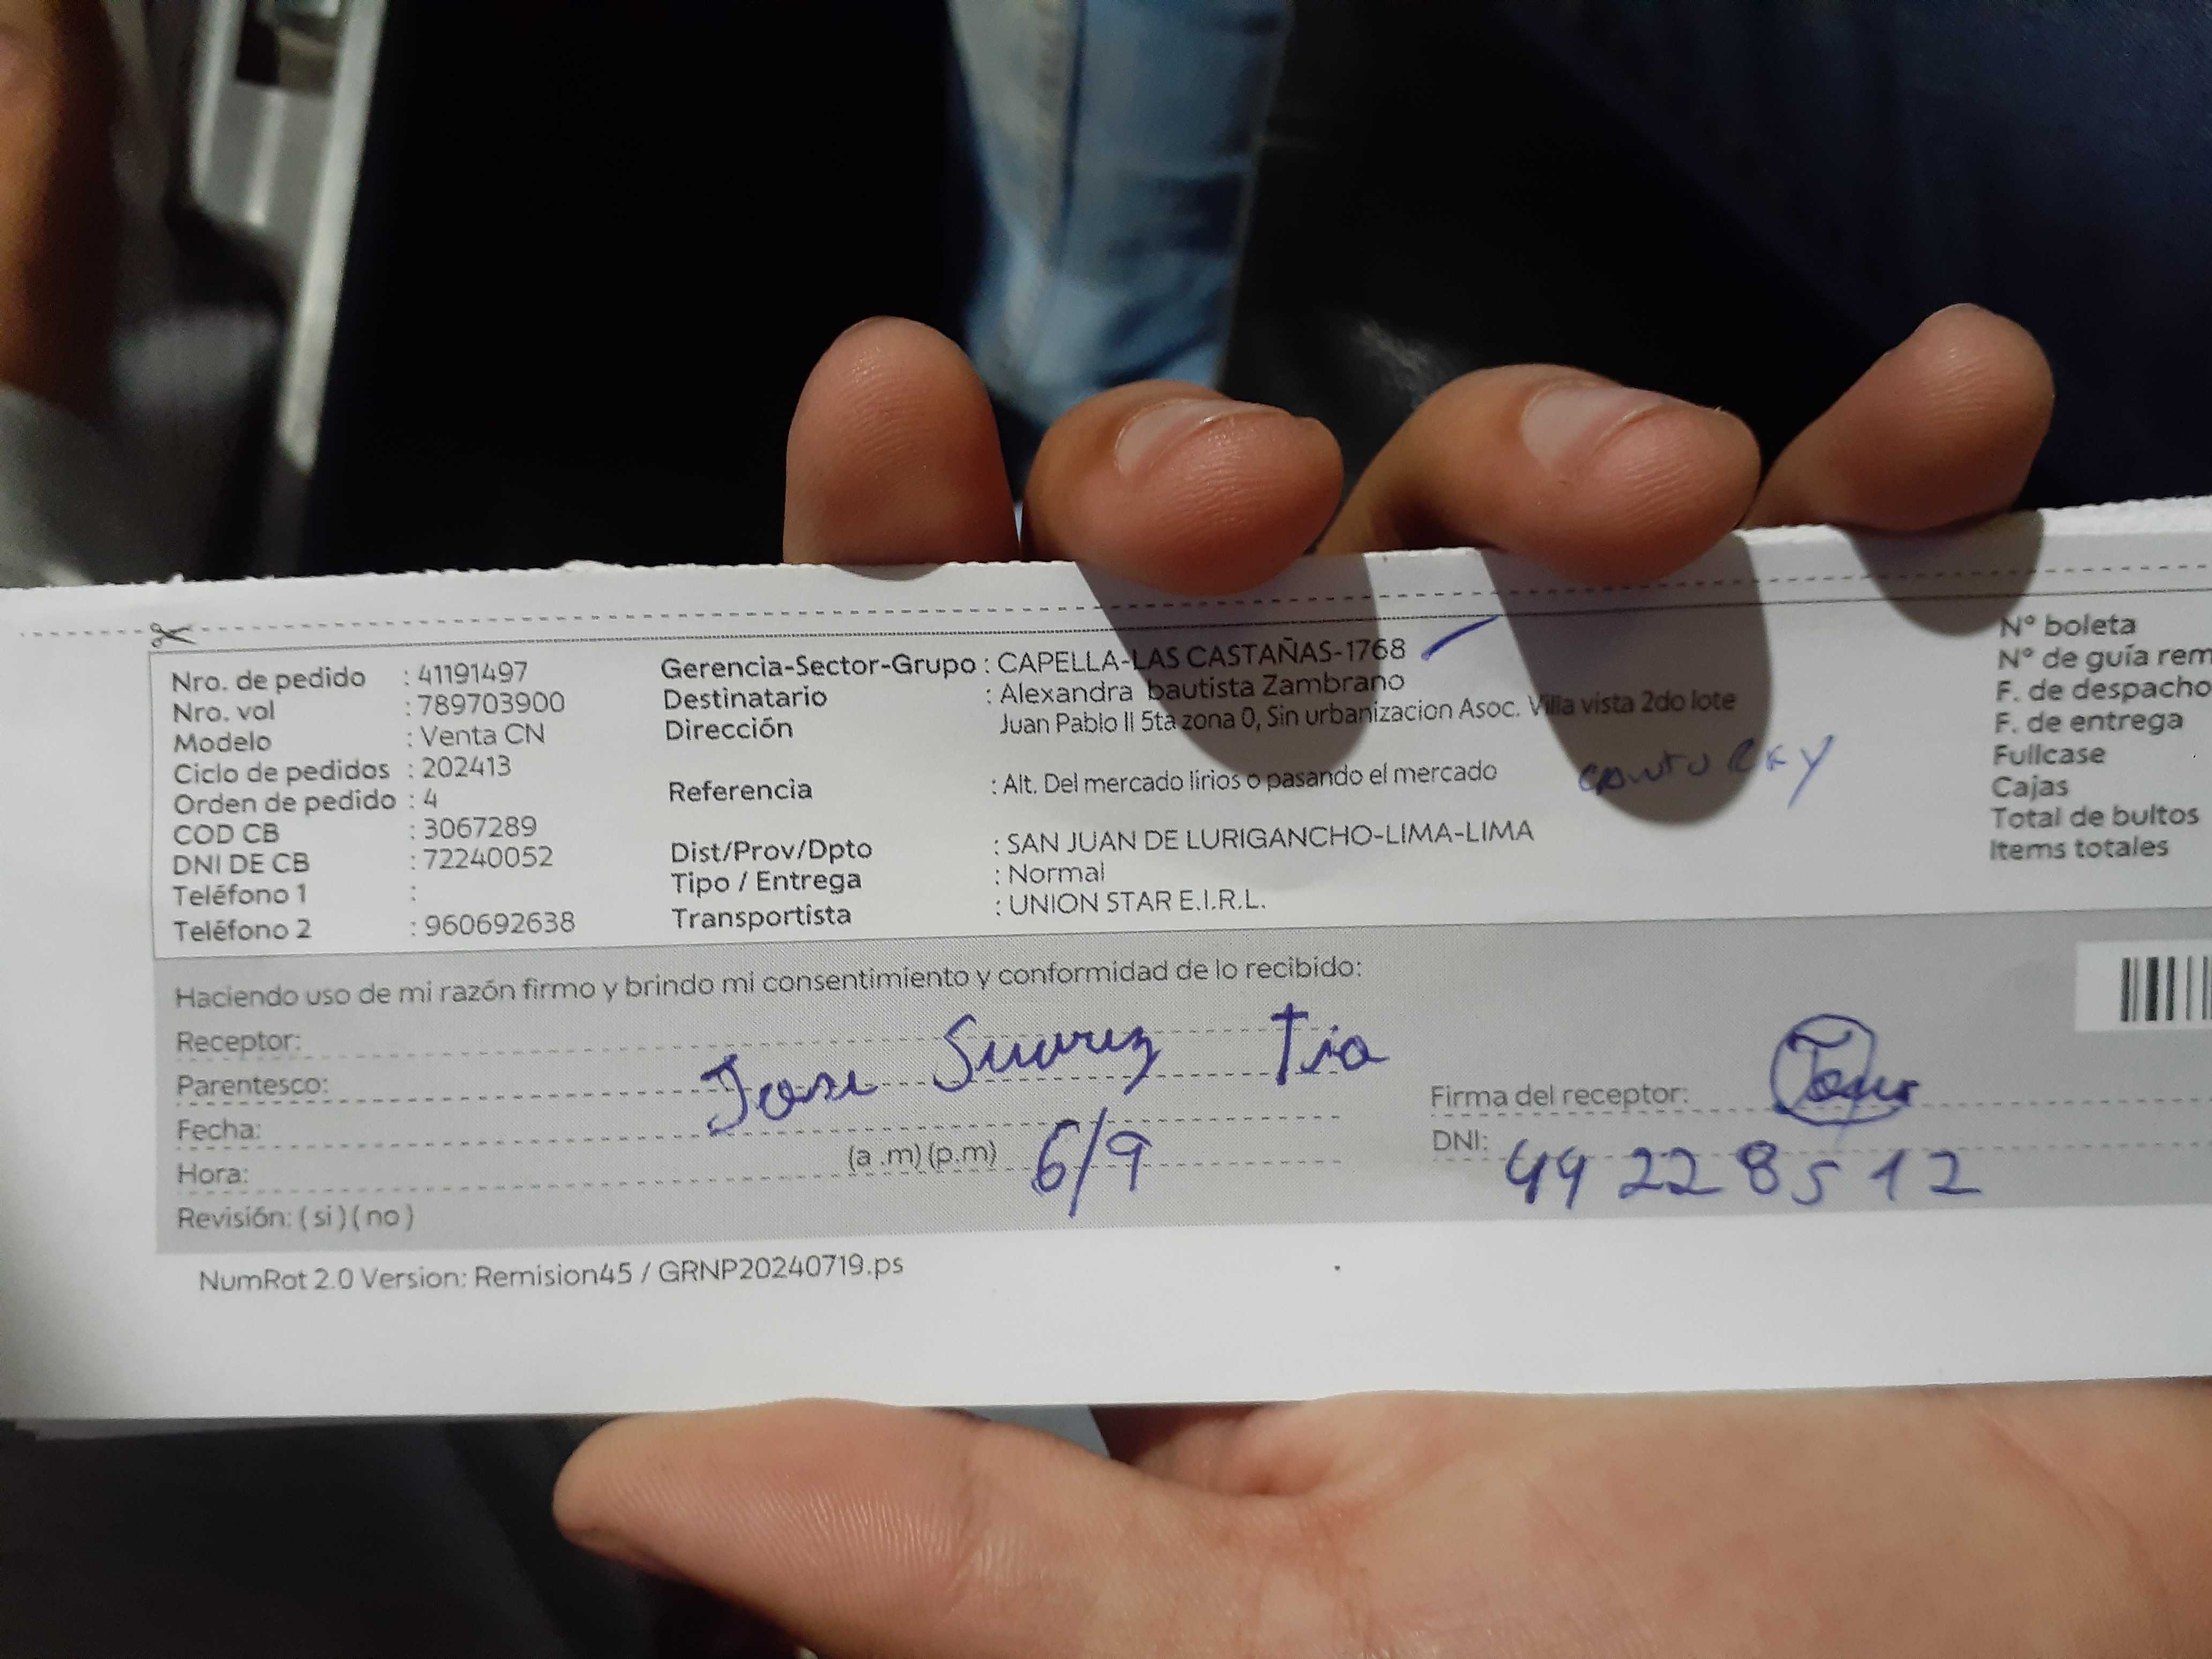 Nro. de pedido : 41191497
Nro. vol : 789703900
Modelo : Venta CN
Ciclo de pedidos : 202413
Orden de pedido : 4
COD CB : 3067289
DNI DE CB : 72240052
Teléfono 1 :
Teléfono 2 : 960692638
Gerencia-Sector-Grupo : CAPELLA-LAS CASTAÑAS-1768
Destinatario : Alexandra bautista Zambrano
Dirección Juan Pablo II 5ta zona 0, Sin urbanizacion Asoc. Villa vista 2do lote
Referencia : Alt. Del mercado lirios o pasando el mercado
Dist/Prov/Dpto : SAN JUAN DE LURIGANCHO-LIMA-LIMA
Tipo / Entrega : Normal
Transportista : UNION STAR E.I.R.L.
N° boleta
N° de guía rem
F. de despacho
F. de entrega
Fullcase
Cajas
Total de bultos
Items totales
Haciendo uso de mi razón firmo y brindo mi consentimiento y conformidad de lo recibido:
Receptor:
Parentesco: Jose Suarez Tia
Fecha:
Hora: (a .m) (p.m) 6/9
Revisión: ( si ) ( no )
Firma del receptor:
DNI: 44 22 85 12
NumRot 2.0 Version: Remision45 / GRNP20240719.ps